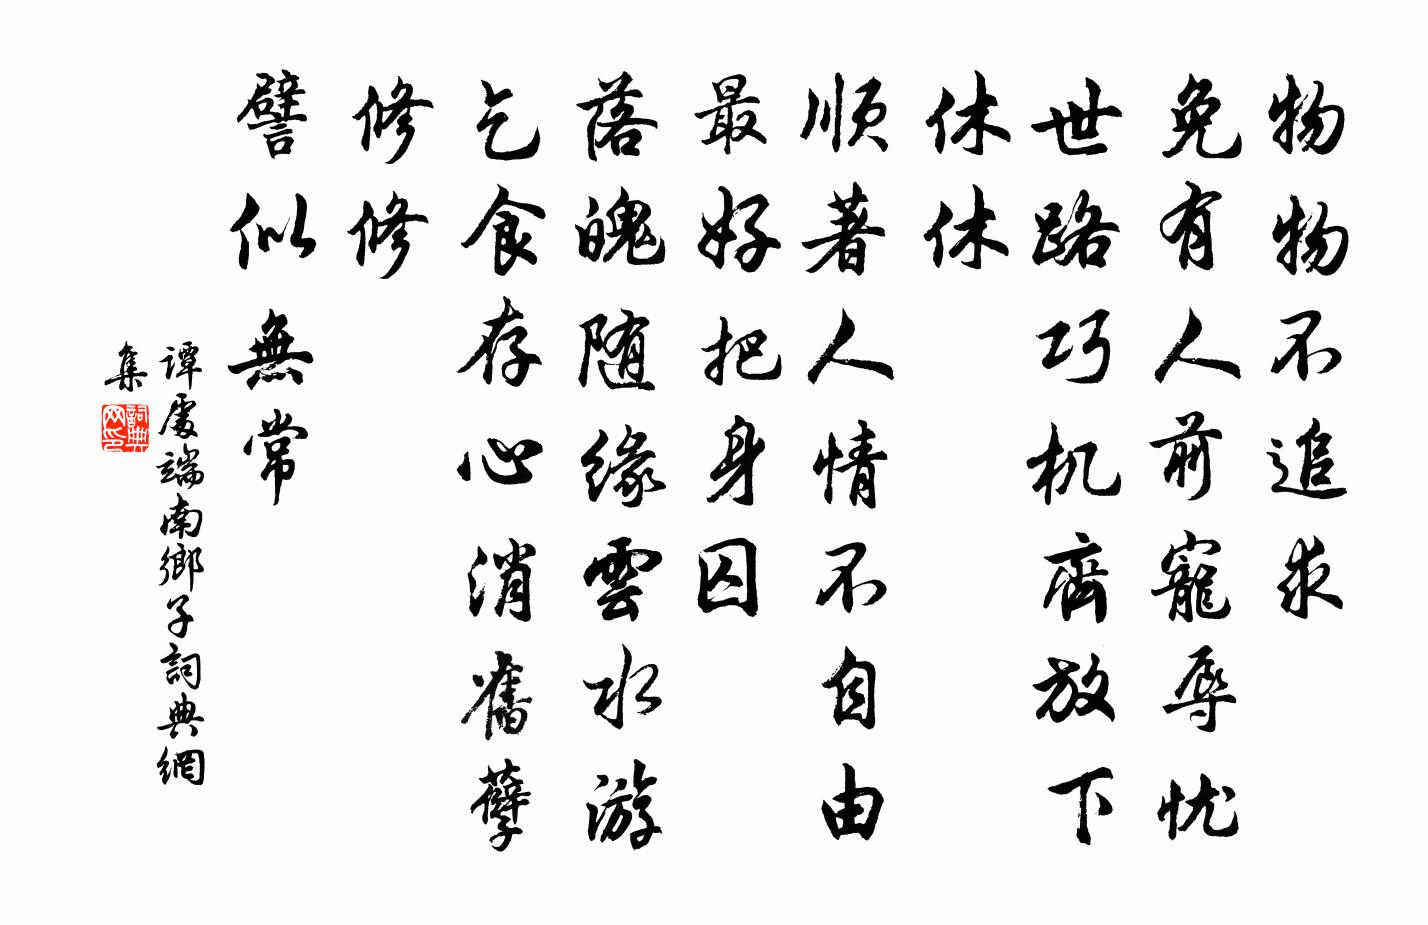 物物不追求
免有人前寵辱忧
世路巧机齊放下
休休
順著人情不自由
最好把身囚
落魄随緣雲水游
乞食存心消舊孽
修修
譬似無常
譚處端南鄉子詞典網
集
詞典
网印